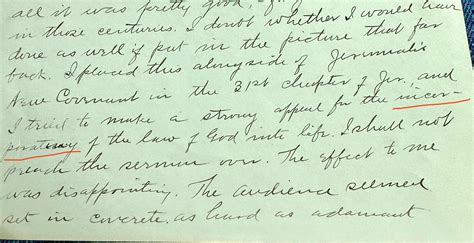 all it was pretty good,
in those centuries. I doubt whether I would have
done as well if put in the picture that far
back. I placed this alongside of Jeremiah's
New Covenant in the 31st chapter of Jer. and
I tried to make a strong appeal for the incor-
porating of the law of God into life. I shall not
preach the sermon over. The effect to me
was disappointing. The audience seemed
set in concrete as hard as adamant